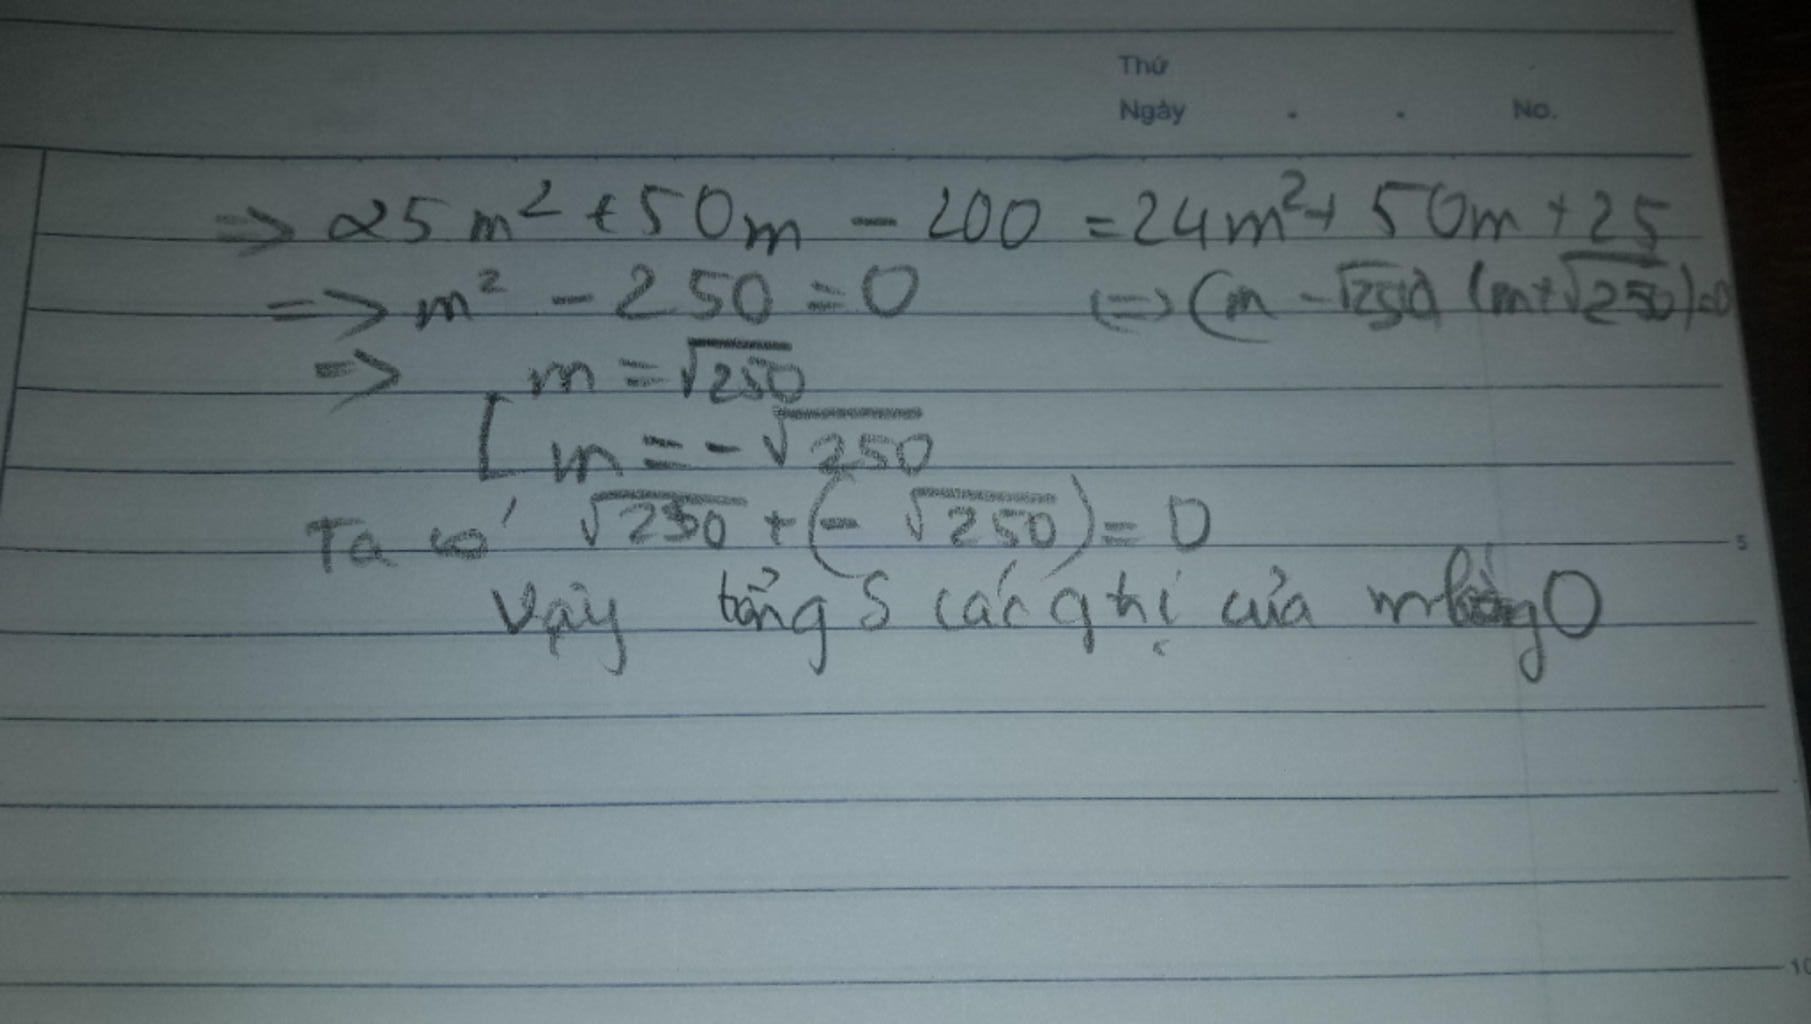 Thứ
Ngày . . No.
=> 25m² + 50m - 200 = 24m² + 50m + 25
=> m² - 250 = 0 <=> (m - √250) (m + √250) = 0
=> [ m = √250
m = -√250
Ta có √250 + (- √250) = 0
Vậy tổng S các gtrị của m bằng 0
5
10